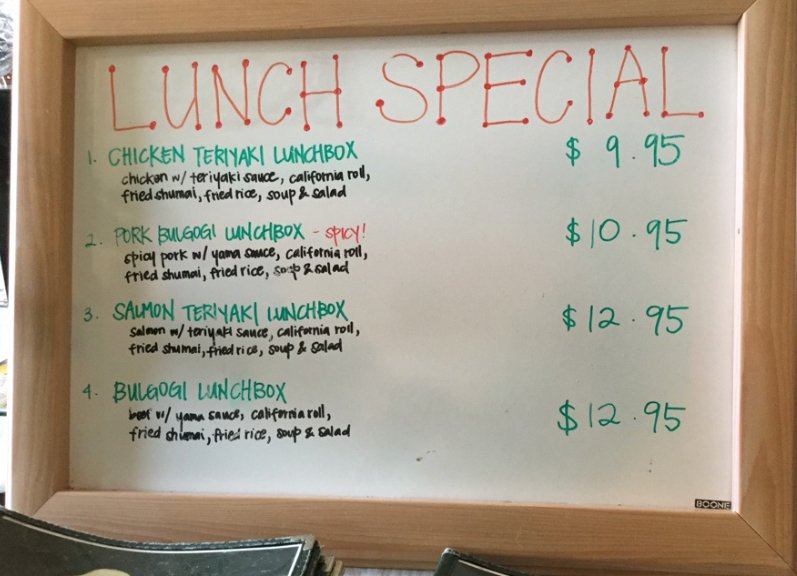 LUNCH SPECIAL
1. CHICKEN TERIYAKI LUNCHBOX $ 9.95
chicken w/ teriyaki sauce, california roll,
fried shumai, fried rice, soup & salad
2. PORK BULGOGI LUNCHBOX - SPICY! $10.95
spicy pork w/ yama sauce, california roll,
fried shumai, fried rice, soup & salad
3. SALMON TERIYAKI LUNCHBOX $12.95
salmon w/ teriyaki sauce, california roll,
fried shumai, fried rice, soup & salad
4. BULGOGI LUNCHBOX $12.95
beef w/ yama sauce, california roll,
fried shumai, fried rice, soup & salad
BOONE